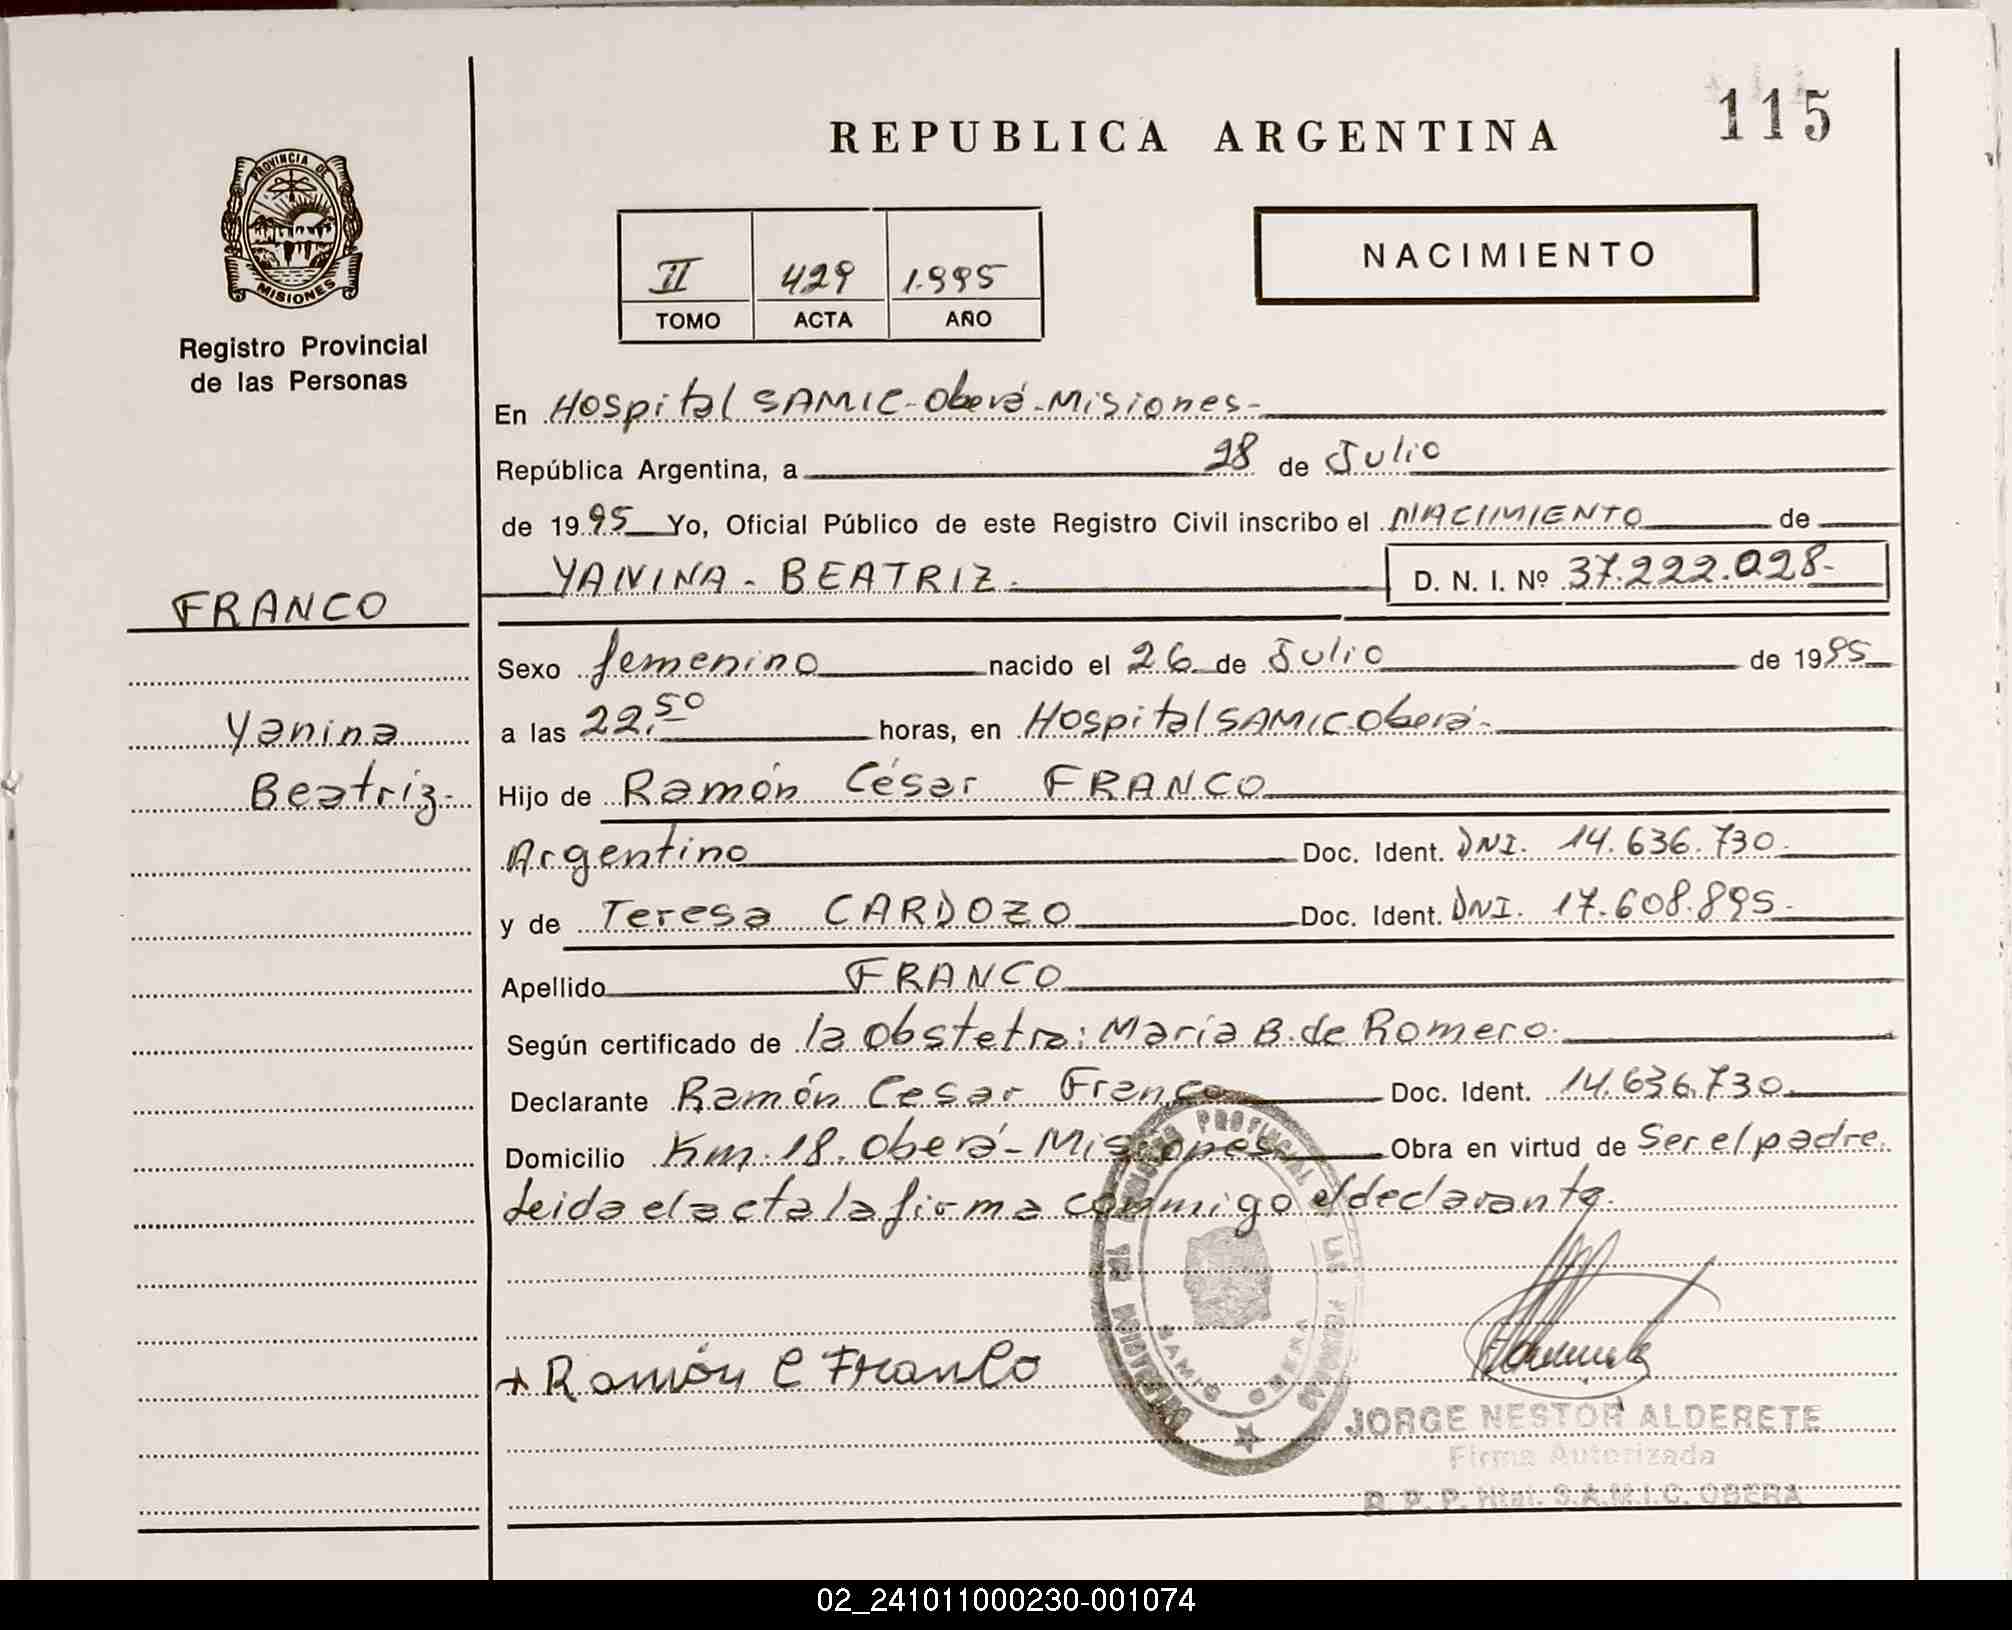 115
REPUBLICA ARGENTINA
PROVINCIA DE
MISIONES
Registro Provincial
de las Personas
II 429 1.995
TOMO ACTA AÑO
NACIMIENTO
En Hospital SAMIC-Oberá-Misiones-
República Argentina, a 28 de Julio
de 1995 Yo, Oficial Público de este Registro Civil inscribo el NACIMIENTO de
YANINA - BEATRIZ. D. N. I. Nº 37.222.028-
FRANCO
Yanina
Beatriz.-
Sexo femenino nacido el 26 de Julio de 1995
a las 22,50 horas, en Hospital SAMIC-Oberá-
Hijo de Ramón César FRANCO
Argentino Doc. Ident. DNI. 14.636.730.
y de Teresa CARDOZO Doc. Ident. DNI. 17.608.895.
Apellido FRANCO
Según certificado de la obstetra: María B. de Romero.
Declarante Ramón Cesar Franco Doc. Ident. 14.636.730
Domicilio Km. 18. Oberá-Misiones Obra en virtud de Ser el padre.
Leida el acta la firma conmigo el declarante.
+ Ramón C Franco
PROVINCIAL
LAS PERSONAS
MISIONES
SAMIC
JORGE NESTOR ALDERETE
Firma Autorizada
R. P. P. Htal. S.A.M.I.C. OBERA
02_241011000230-001074